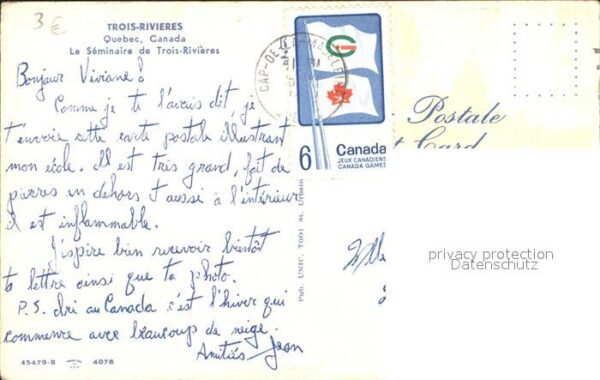 3 €
TROIS-RIVIERES
Quebec, Canada
Le Séminaire de Trois-Rivières
Bonjour Viviane!
Comme je te l'avais dit, je
t'envoie cette carte postale illustrant
mon école. Il est très grand, fait de
pierres en dehors & aussi à l'intérieur
il est inflammable.
J'espère bien recevoir bientôt
ta lettre ainsi que ta photo.
P.S. Ici au Canada c'est l'hiver qui
commence avec beaucoup de neige.
Amitiés Jean
45479-B 4078
CAP-DE-LA-MADELEINE
6
Canada
JEUX CANADIENS
CANADA GAMES
Pub. UNIC, 7001 St. Urbain
Postale
Card
Mlle
privacy protection
Datenschutz